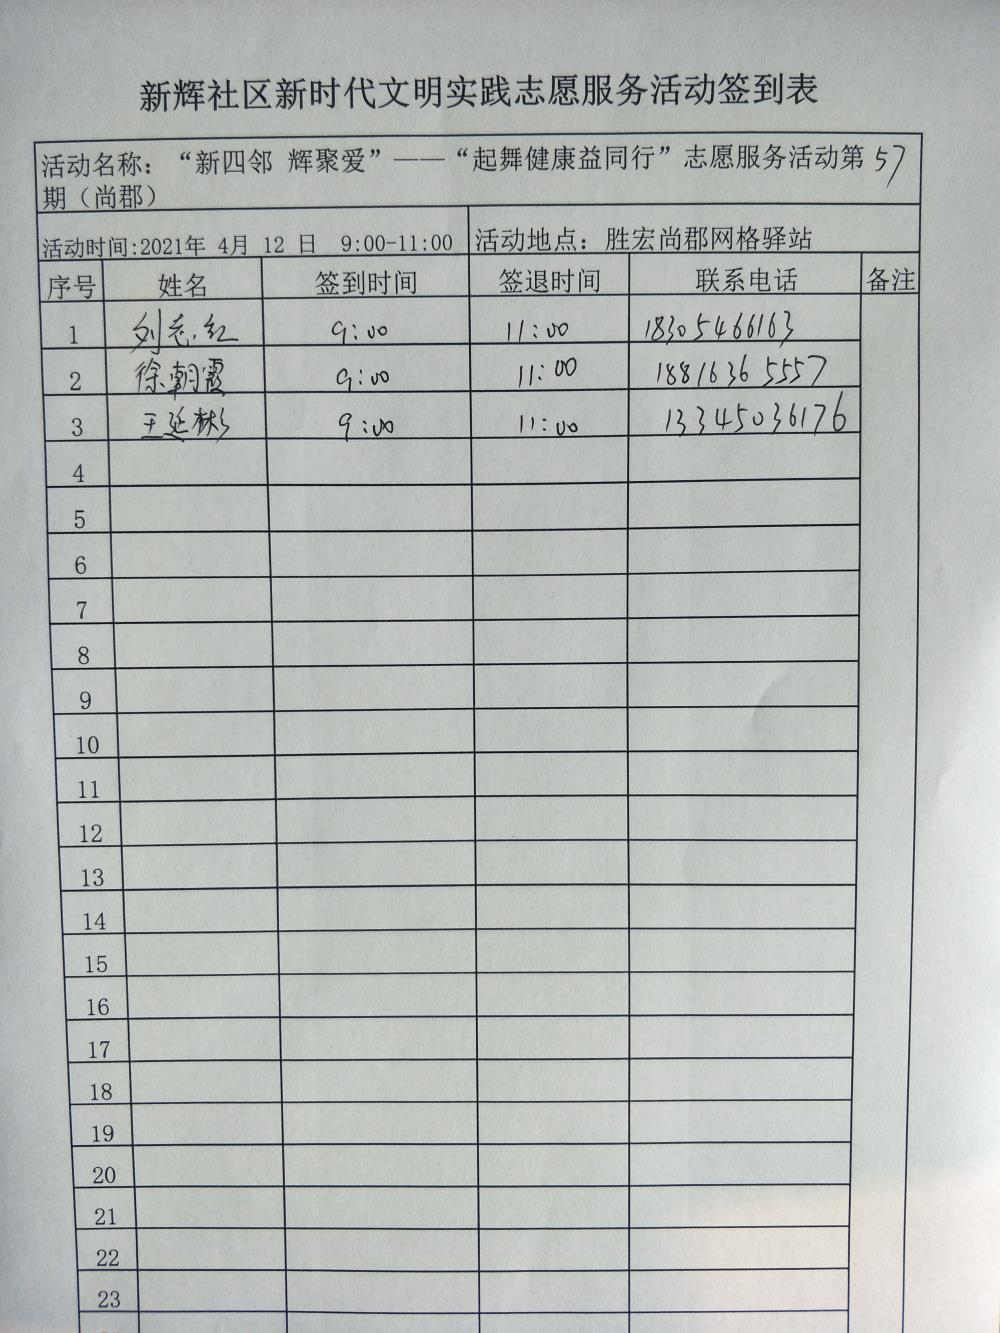 新辉社区新时代文明实践志愿服务活动签到表
活动名称：“新四邻 辉聚爱”——“起舞健康益同行”志愿服务活动第57
期（尚郡）
活动时间:2021年 4月 12 日 9:00-11:00 活动地点：胜宏尚郡网格驿站
序号 姓名 签到时间 签退时间 联系电话 备注
1 刘志红 9:00 11:00 18305466163
2 徐朝霞 9:00 11:00 18816365557
3 王延彬 9:00 11:00 13345036176
4
5
6
7
8
9
10
11
12
13
14
15
16
17
18
19
20
21
22
23